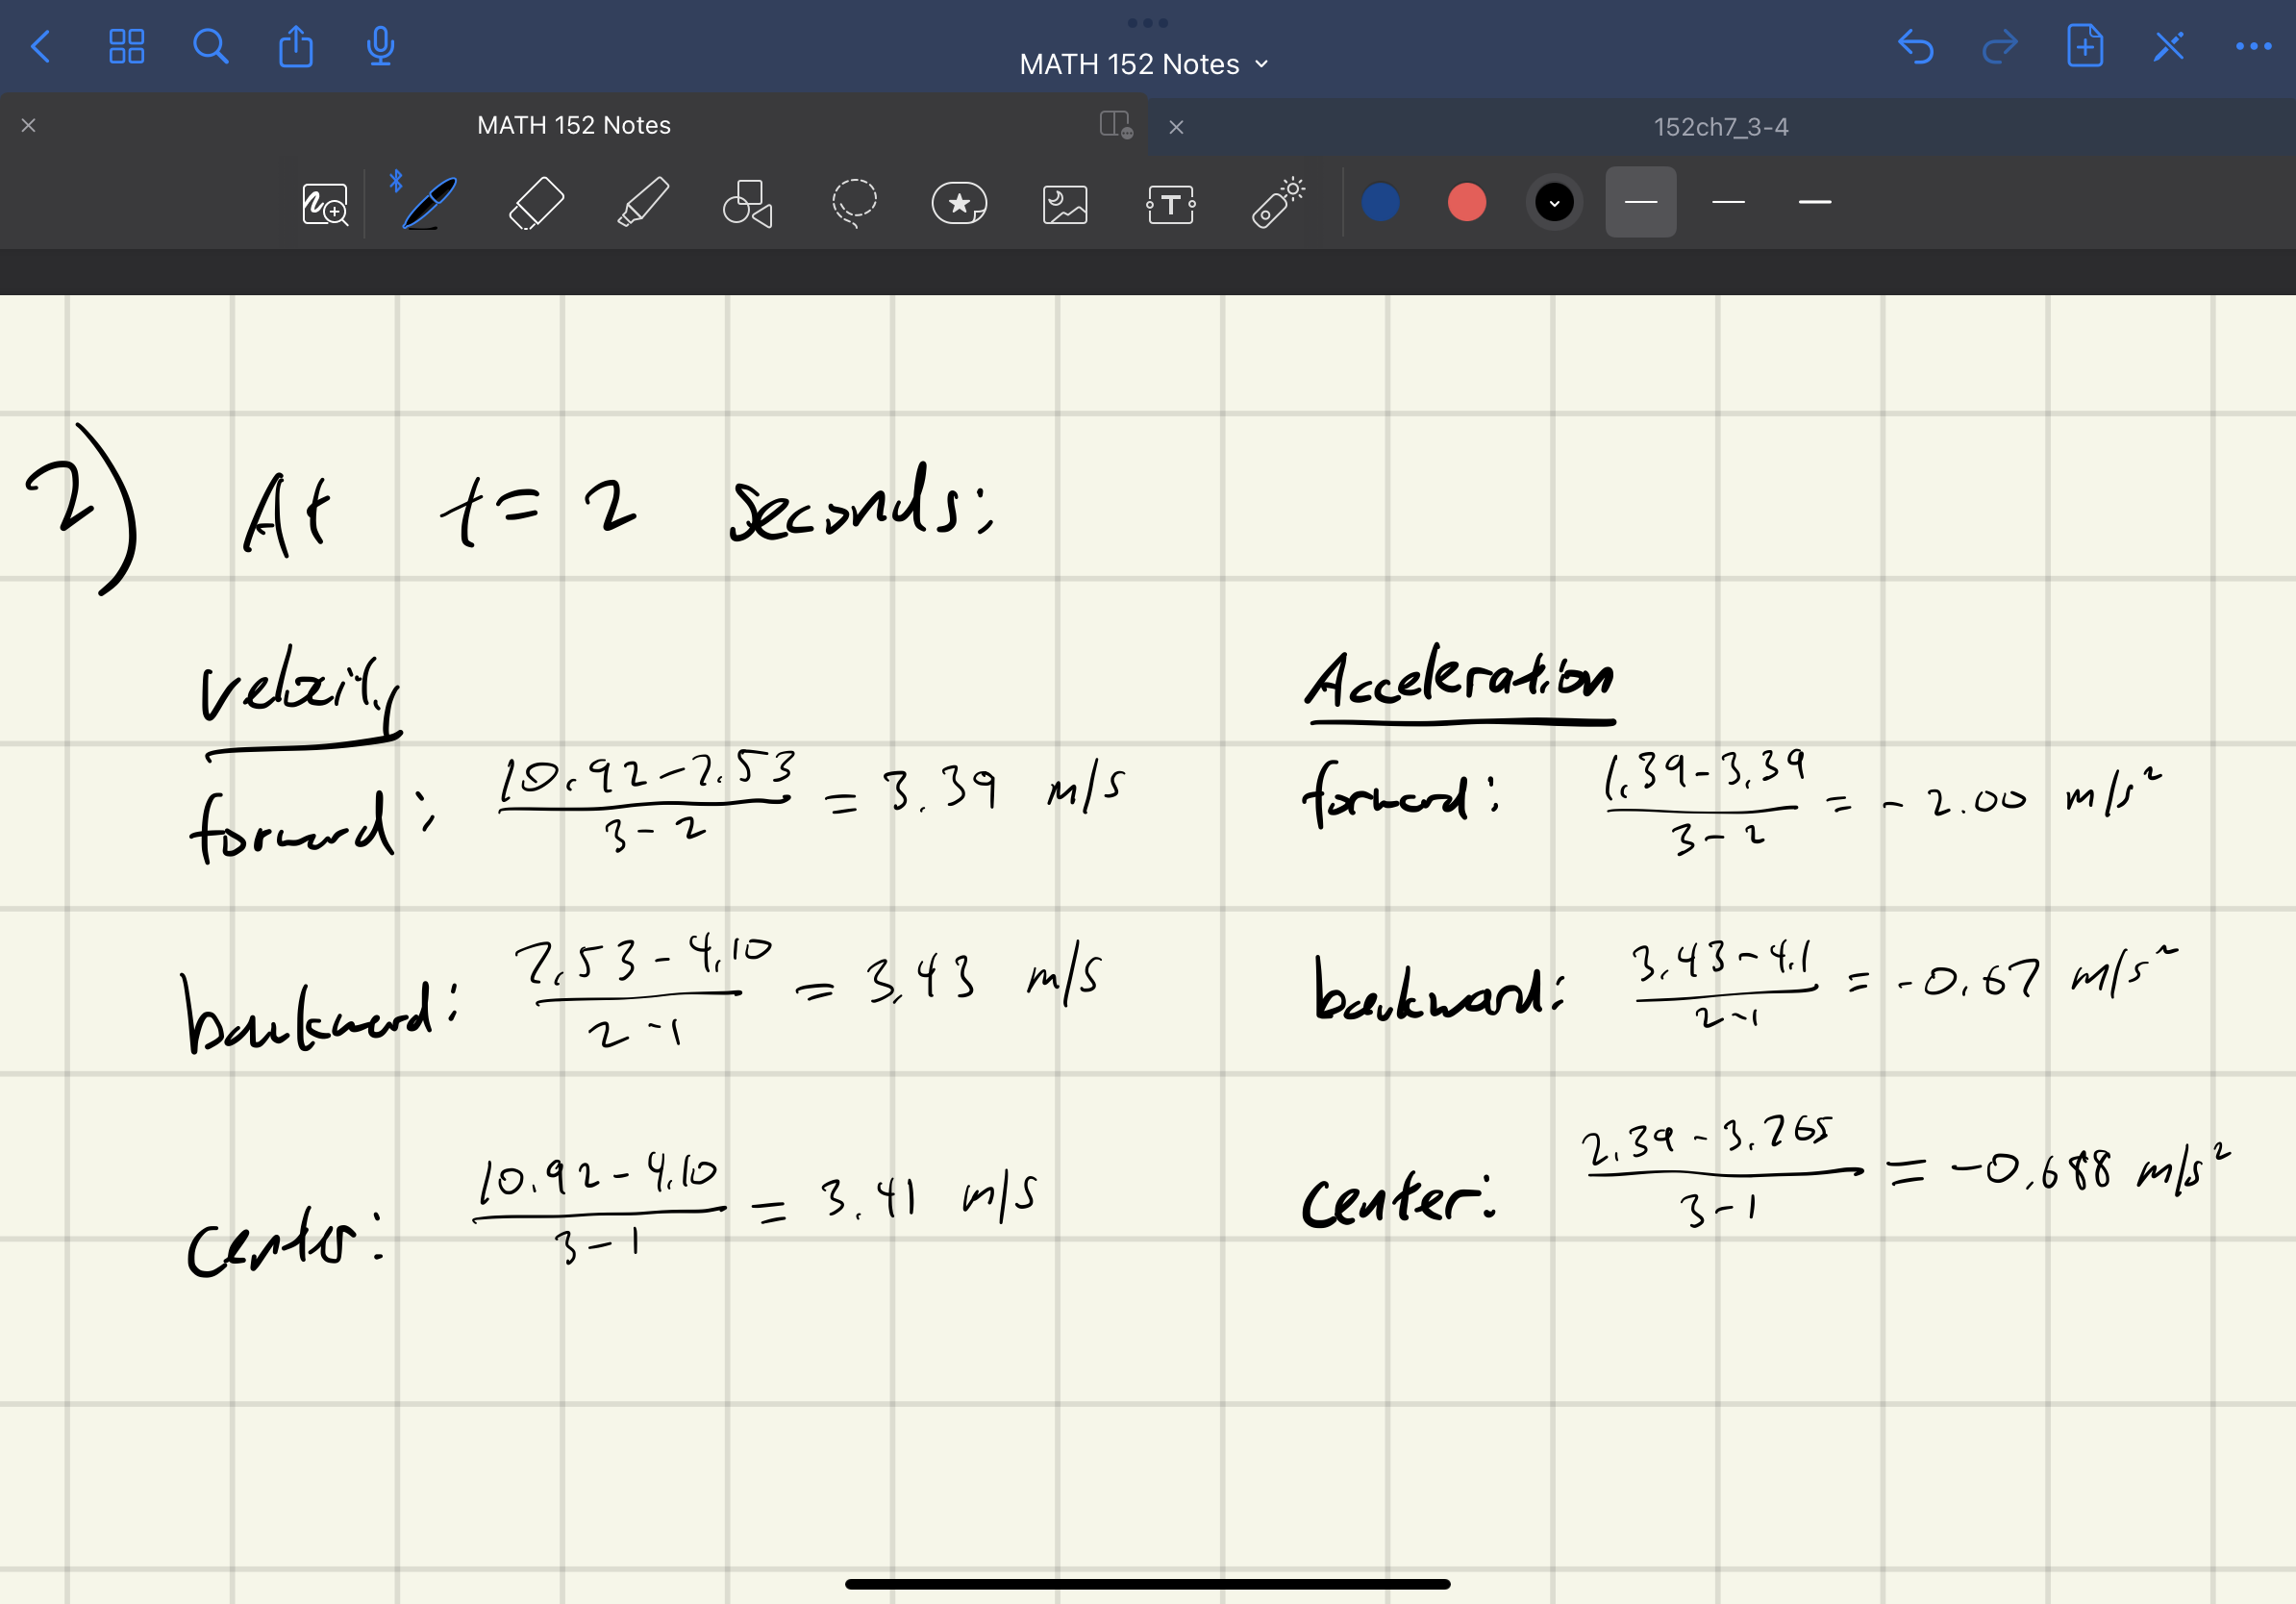 MATH 152 Notes
MATH 152 Notes
152ch7_3-4
2) At t = 2 seconds:
Velocity
forward: (10.92 - 7.53)/(3 - 2) = 3.39 m/s
backward: (7.53 - 4.10)/(2 - 1) = 3.43 m/s
center: (10.92 - 4.10)/(3 - 1) = 3.41 m/s
Acceleration
forward: (1.39 - 3.39)/(3 - 2) = - 2.00 m/s²
backward: (3.43 - 4.1)/(2 - 1) = - 0.67 m/s²
center: (2.39 - 3.765)/(3 - 1) = - 0.688 m/s²